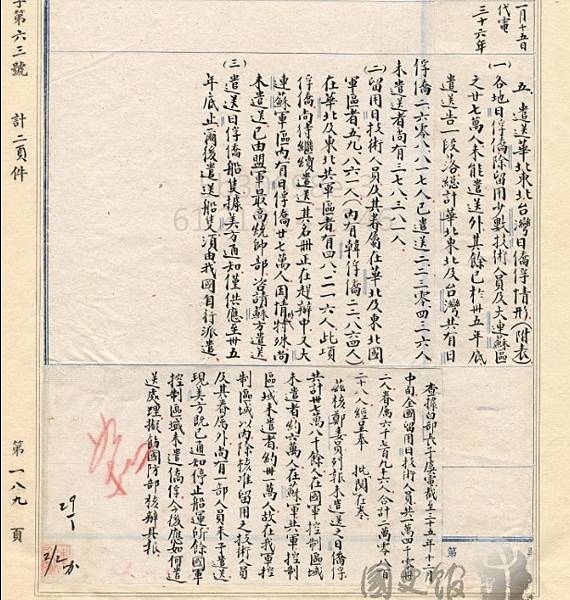 一月十五日
代電
三十六年
五、遣送華北東北台灣日僑俘情形(附表)
(一)各地日俘僑除留用少數技術人員及大連蘇區
之廿七萬人未能遣送外其餘已於卅五年底
遣送告一段落總計華北東北及台灣共有日
俘僑二六零八八一七人已遣送二二三零四三六人
未遣送者尚有三七八三八一人、
(二)留用日技術人員及其眷屬在華北及東北國
軍區者五九、八六一人(內有韓俘僑二二八六四人)
在華北及東北共軍區者有四八、二一六人此項
俘僑尚待繼續遣送其名冊正在趕辦中又大
連蘇軍區內有日俘僑廿七萬人因情形特殊尚
未遣送已由盟軍最高統帥部洽請蘇方遣送
(三)遣送日俘僑船隻據美方通知僅供應至卅五
年底止爾後遣送船隻須由我國自行派遣、
查據白部長子虞電截至三十五年十二月
中旬全國留用日技術人員共一萬四千零卅
二人眷屬六千七百九十六人合計二萬零八百
二十八人經呈奉 批閱在卷
茲核鄭委員列報未遣送之日僑俘
共計卅七萬八千餘人在國軍控制區域
未遣送者約六萬人在蘇軍共軍控制
區域未遣送者約卅一萬人故在我軍控
制區域以內除核准留用之技術人員
及其眷屬外尚有一部人員未予遣送
現美方既已通知停止船運所餘國軍
控制區域未遣僑俘今後應如何遣
送處理擬飭國防部核辦具報
字第六三號 計二頁件
第一八九頁
第
國史館